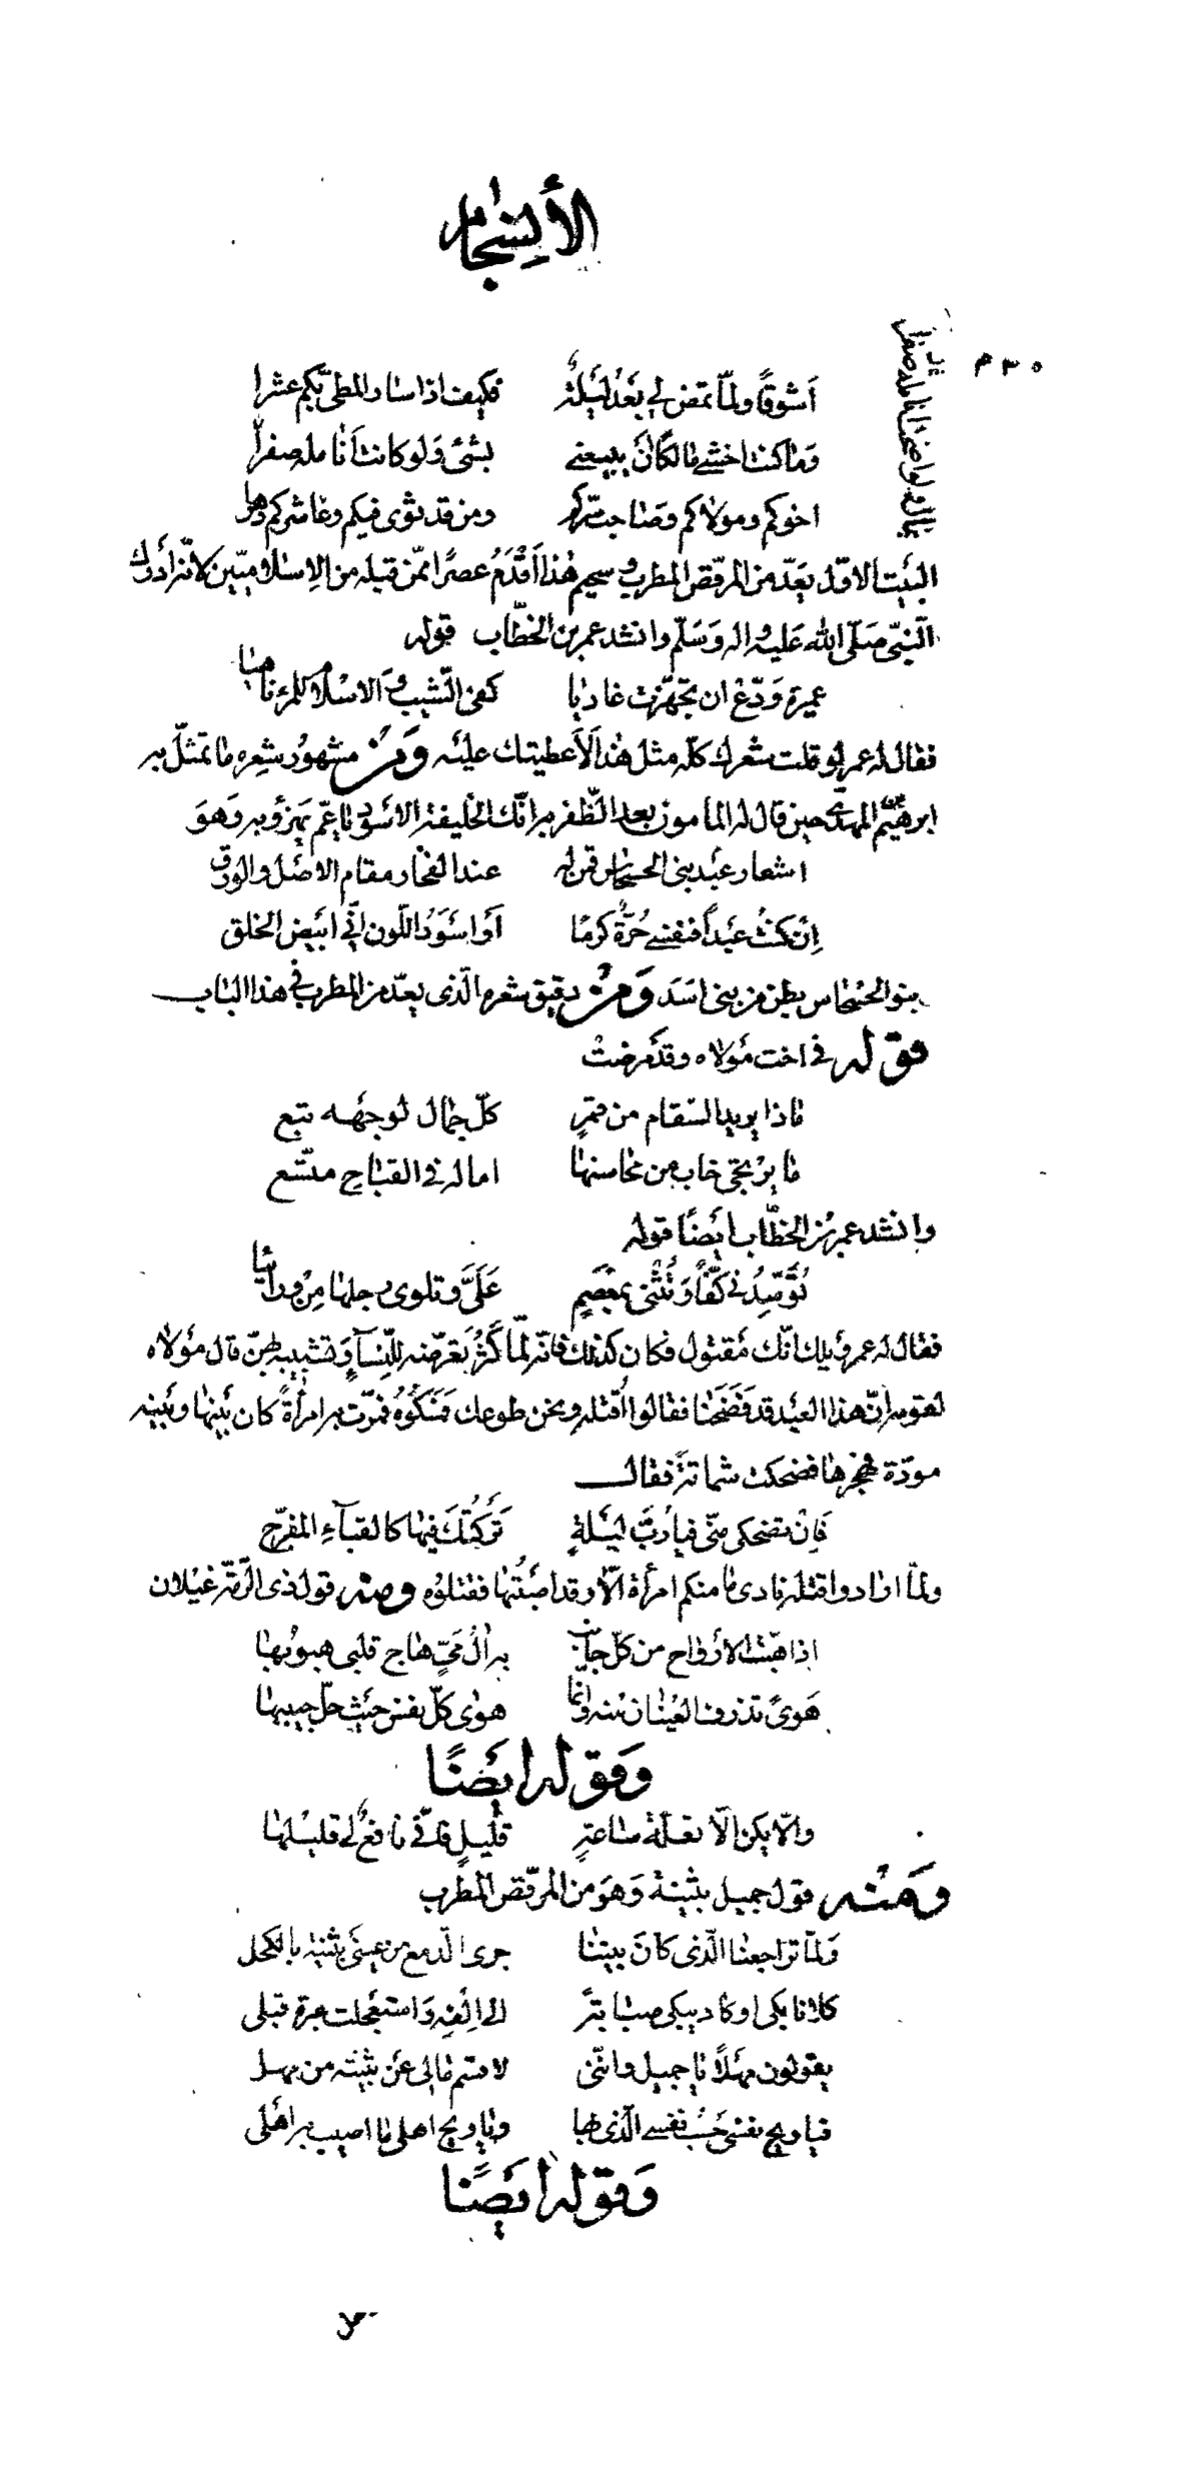 الأنسجام
٤٣٥
أَشوقًا ولمّا تمض لي بَعْدُ لَيلَةٌ فكيف اذا سار المطيّ بكم عشرا
وَما كنت اخشى مالكًا أنْ يبيعني بشئ وَلو كانت أنامله صفرا
اخوكم ومولاكم وصاحب سرّكم ومن قد ثوى فيكم وعاشركم دهرا
البَيت الاوّل يعَدّ من المرقّص المطرب وسحيم هٰذا أَقْدَمُ عصرًا ممّن قبله من الإسلاميّين لانّه أدرك
النّبيّ صَلّى الله عَليْه واله وَسَلّم وانشد عمر بن الخطّاب قوله
عميرة وَدّعْ ان تجهّزت غاديا كفى الشّيب وَالاسْلام للمرء ناهيا
فقال له عمر لو قلت شعرك كلّه مثل هٰذا لَأَعطيتك عليْه وَمن مشهوُر شِعره ما تمثّل به
ابرهيم بن المهدي حين قال له المامون بعد الظّفر به انّك الخليفة الاسْود يا عمّ يهزؤ به وَهوَ
اشعار عبْد بنى الحسحاس قمن له عند الفخار مقام الاصْل والورق
إن كنْتُ عَبْداً فنفسى حُرّةٌ كرمًا أوْ اسْوَدُ اللّون انّي ابيَض الخلق
بنو الحسْحاس بطن من بنى اسَد وَمنْ دقيق شعره الّذى يعدّ من المطرب فى هذا الباب
قوله فى اخت مَولاه وقد مَرضتْ
ماذا يريد السّقام من قمرٍ كلّ جمال لوجهْه تبع
ما يرْتجى خاب من محاسنها اما له فى القباح متّسع
وانشد عمر بن الخطّاب ايضًا قوله
تُوَسِّدُنى كَفًّا وَتُثْنى بمِعْصَمٍ عَلَيَّ وتلوى رجلها مِنْ ورائيا
فقال له عمر ويلك انّك مَقتول فكان كذلك فانّه لمّا كَثُرَ تعرّضه للنّسآءِ وَتشبيبه بهنّ قال مَولاه
لقومه انّ هذا العبْد قد فَضَحَنا فقالوا اُقتله ونحن طوعك فَمَسَكُوُه فمرّت به امرأةٌ كان بَيْنها وبَيْنه
مودّة فهجرها فضحكت شماتةً فقال
فَاِنْ تضحكى منّى فيا رُبَّ ليْلةٍ تَرَكْتُكَ فيها كالقبآءِ المفرّج
ولمّا ارادوا قتله نادى ما منكم امرأة الّا وقد اصَبْتُها فقتلوُه ومنه قول ذى الرّمّة غيْلان
اذا هبّت الأرواح من كلّ جانب به الُ مَيّ هاج قلبى هبوُبها
هَوىً تذرف العيْنان منه وانّما هوٰى كلّ نفس حيْث حلّ حبيبها
وَقوله ايَضًا
والّا يكن الّا تعلّة ساعةٍ قليلٍ فانّى نافعٌ لى قليْلها
وَمنْه قول جميل بثينة وَهوَ من المرقّص المطرب
وَلمّا تراجعنا الّذى كانَ بيننا جرى الدّمع من عينىْ بثينة بالكحل
كلانا بكى او كاد يبكى صبابةً الى اِلْفِه وَاستعْجلت عبرة قبلى
يقولون مهْلًا يا جميل وانّنى لاقسم مالى عَن بثينة من مهل
فيا ويح نفسى حَسْبُ نفسى الّذى بها ويا ويح اهلى ما اصيب به أهْلى
وَقوله ايَضًا